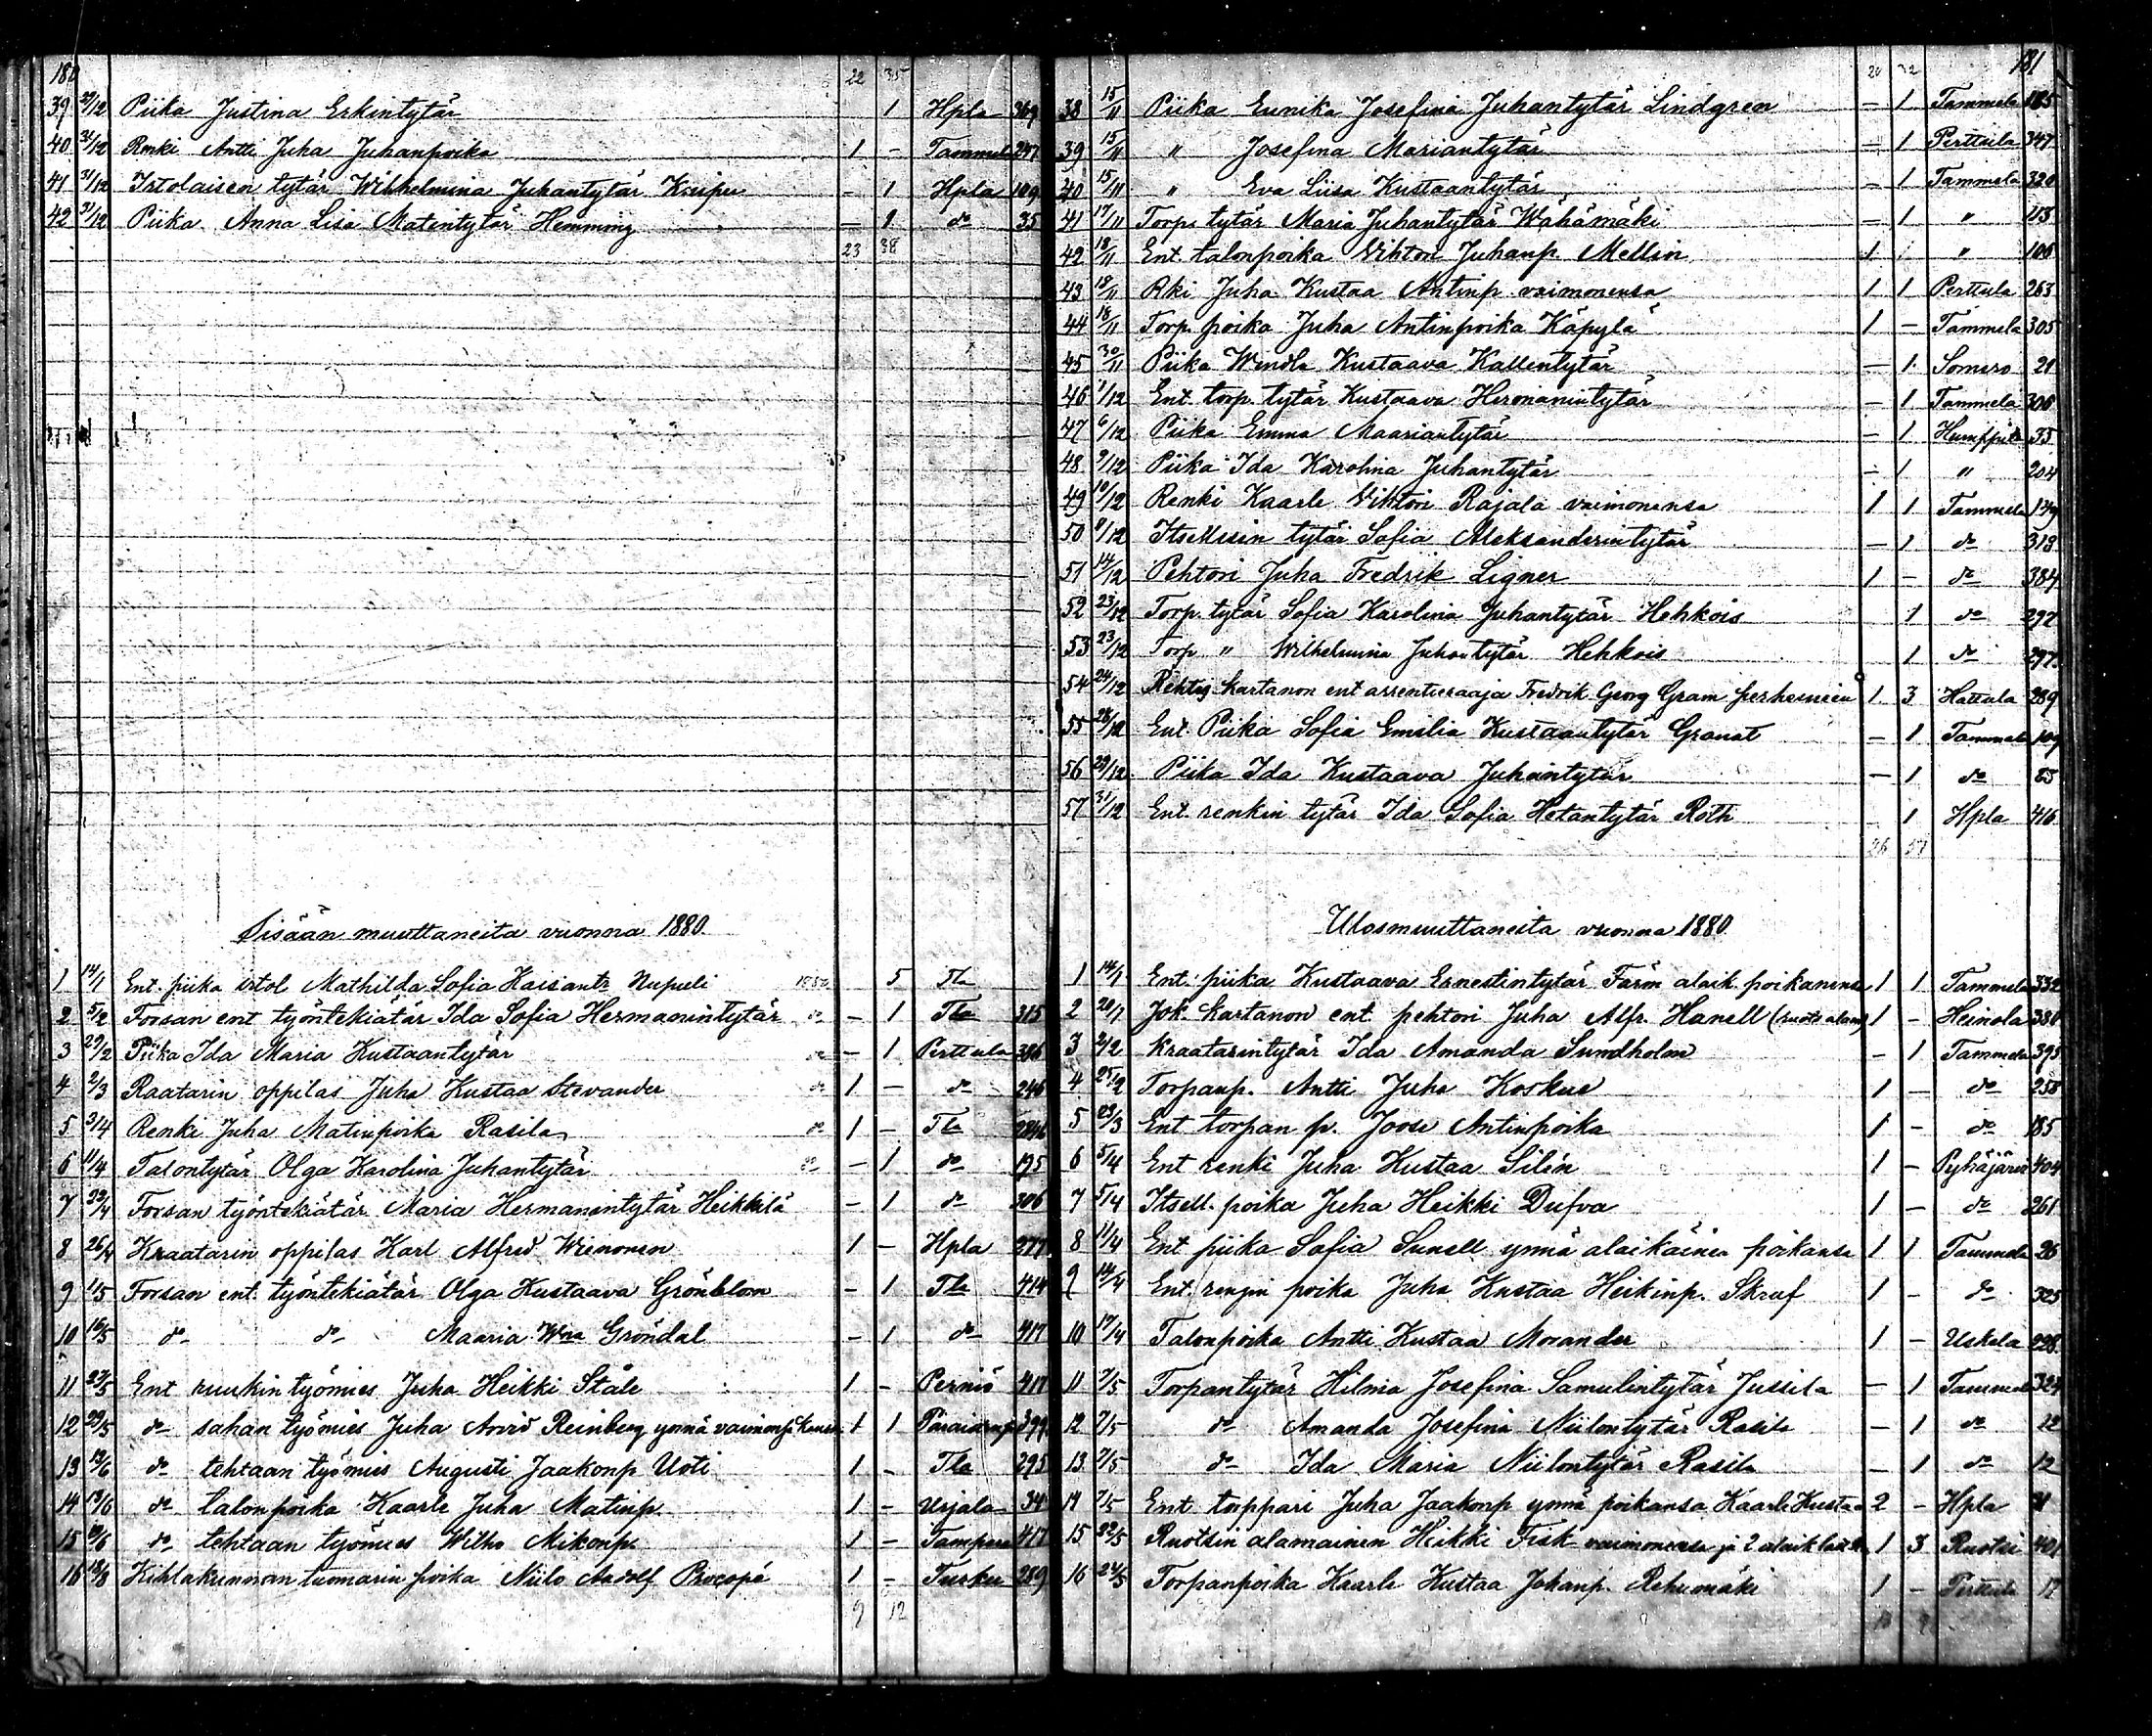 180
22 35
39 29/12 Piika Justina Erkintytär 1 Hpla 369
40 31/12 Renki Antti Juha Juhanpoika 1 - Tammela 297
41 31/12 Irtolaisen tytär Wilhelmina Juhantytär Kaipu - 1 Hpla 109
42 31/12 Piika Anna Lisa Matintytär Hemming - 1 do 35
23 38
Sisään muuttaneita vuonna 1880.
1 14/1 Ent. piika irtol Mathilda Sofia Kaisantr Nupuli 1880 5 Tla
2 5/2 Forsan ent työntekiätär Ida Sofia Hermanintytär do - 1 Tla 315
3 29/2 Piika Ida Maria Kustaantytär do - 1 Perttula 386
4 2/3 Raatarin oppilas Juha Kustaa Stevander do 1 - do 246
5 3/4 Renki Juha Matinpoika Rasila do 1 - Tla
6 11/4 Talontytär Olga Karolina Juhantytär do - 1 do 195
7 23/4 Forsan työntekiätär Maria Hermanintytär Heikkilä - 1 do 306
8 26/4 Kraatarin oppilas Karl Alfred Wienonen 1 - Hpla 277
9 1/5 Forsan ent. työntekiätär Olga Kustaava Grönblom - 1 Tla 414
10 16/5 do do Maaria Wna Gröndal - 1 do 417
11 23/5 Ent ruukin työmies Juha Heikki Ståle 1 - Perniö 417
12 29/5 do sahan työmies Juha Arvid Reinberg ynnä vaimonsa kanssa 1 1 399
13 13/6 do tehtaan työmies Augusti Jaakonp Uoti 1 - Tla 295
14 13/6 do talonpoika Kaarle Juha Matinp. 1 - Urjala 34
15 19/6 do tehtaan työmies Wilho Mikonp. 1 - Tampere 417
16 13/8 Kihlakunnan tuomarin poika Niilo Adolf Procopé 1 - Turku 289
9 12
181
20 32
38 15/11 Piika Eunika Josefina Juhantytär Lindgren - 1 Tammela 185
39 15/11 " Josefina Mariantytär - 1 Perttula 347
40 15/11 " Eva Liisa Kustaantytär - 1 Tammela 320
41 17/11 Torp. tytär Maria Juhantytär Wähämäki - 1 " 113
42 18/11 Ent. talonpoika Vihtori Juhanp. Mellin 1 " 106
43 18/11 Rki Juha Kustaa Antinp. vaimonensa 1 1 Perttula 263
44 18/11 Torp. poika Juha Antinpoika Käpylä 1 - Tammela 305
45 30/11 Piika Wendla Kustaava Kallentytär - 1 Somero 21
46 1/12 Ent. torp. tytär Kustaava Hermanintytär - 1 Tammela 306
47 6/12 Piika Emma Maariantytär - 1 Humppila 35
48 9/12 Piika Ida Karolina Juhantytär - 1 " 204
49 10/12 Renki Kaarle Viktori Rajala vaimonensa 1 1 Tammela 149
50 11/12 Itsellisen tytär Sofia Aleksanderintytär - 1 do 313
51 14/12 Pehtori Juha Fredrik Ligner 1 - do 384
52 23/12 Torp. tytär Sofia Karolina Juhantytär Hehkois 1 do 297
53 23/12 Torp. " Wilhelmina Juhantytär Hehkois 1 do 297
54 24/12 Rehtij. kartanon ent arrentieraaja Fredrik Georg Gram perheineen 1 3 Hattula 289
55 28/12 Ent. Piika Sofia Emilia Kustaantytär Granat - 1 Tammela 109
56 29/12 Piika Ida Kustaava Juhantytär - 1 do 25
57 31/12 Ent. renkin tytär Ida Sofia Hetantytär Roth 1 Hpla 416
26 51
Ulosmuuttaneita vuonna 1880
1 14/1 Ent. piika Kustaava Ernestintytär Färm alaik. poikanensa 1 1 Tammela 332
2 20/1 Jok. kartanon ent. pehtori Juha Alfr. Hanell (ruots alam) 1 - Heinola 380
3 2/2 Kraatarintytär Ida Amanda Sundholm - 1 Tammela 395
4 25/2 Torpanp. Antti Juha Koskue 1 - do 258
5 23/3 Ent torpan p. Joose Antinpoika 1 - do 185
6 5/4 Ent renki Juha Kustaa Silén 1 - Pyhäjärvi 404
7 5/4 Itsell. poika Juha Heikki Dufva 1 - do 261
8 11/4 Ent piika Sofia Sunell ynnä alaikäinen poikansa 1 1 Tammela 26
9 14/4 Ent. rengin poika Juha Kustaa Heikinp. Skruf 1 - do 325
10 17/4 Talonpoika Antti Kustaa Morander 1 - Uskela 228
11 7/5 Torpantytär Hilma Josefina Samulintytär Jussila - 1 Tammela 324
12 7/5 do Amanda Josefina Niilontytär Rasila - 1 do 12
13 7/5 do Ida Maria Niilontytär Rasila - 1 do 12
14 7/5 Ent torppari Juha Jaakonp ynnä poikansa Kaarle Kustaa 2 - Hpla 31
15 22/5 Ruotsin alamainen Heikki Fisk vaimonensa ja 2 alaik lasta 1 3 Ruotsi 401
16 24/5 Torpanpoika Kaarle Kustaa Johanp. Rehumäki 1 - Perttula 17